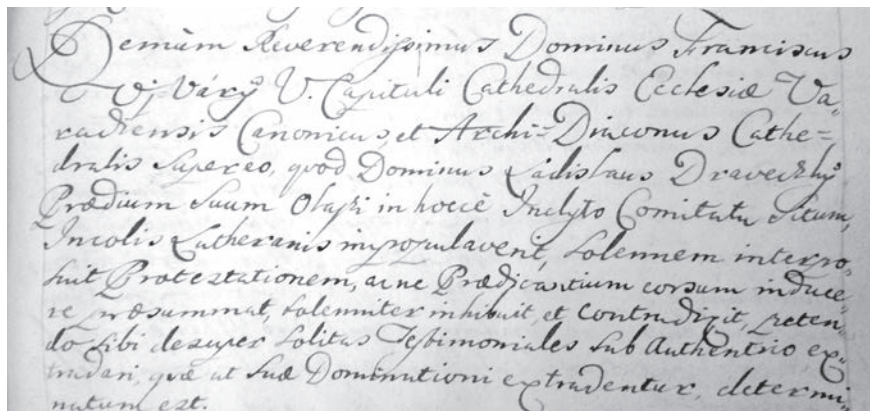 Demùm Reverendissimus Dominus Franciscus
Uj Váry V. Capituli Cathedralis Ecclesiæ Va-
radiensis Canonicus, et Archi-Diaconus Cathe-
dralis Supereo, quod Dominus Ladislaus Draveczky
Prædium Suum Olaszi in hocce Inclyto Comitatu Situm,
Incolis Lutheranis impopulaverit, Solennem interpo-
suit Protestationem, ac ne Prædicantium eorsum induce-
re præsummat, Solenniter inhibuit, et Contradixit, peten-
do Sibi desuper Solitas Testimoniales Sub Authentico ex-
tradari, quæ ut Suæ Dominationi extradentur, determi-
natum est.